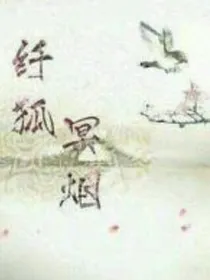 纤狐
冥烟